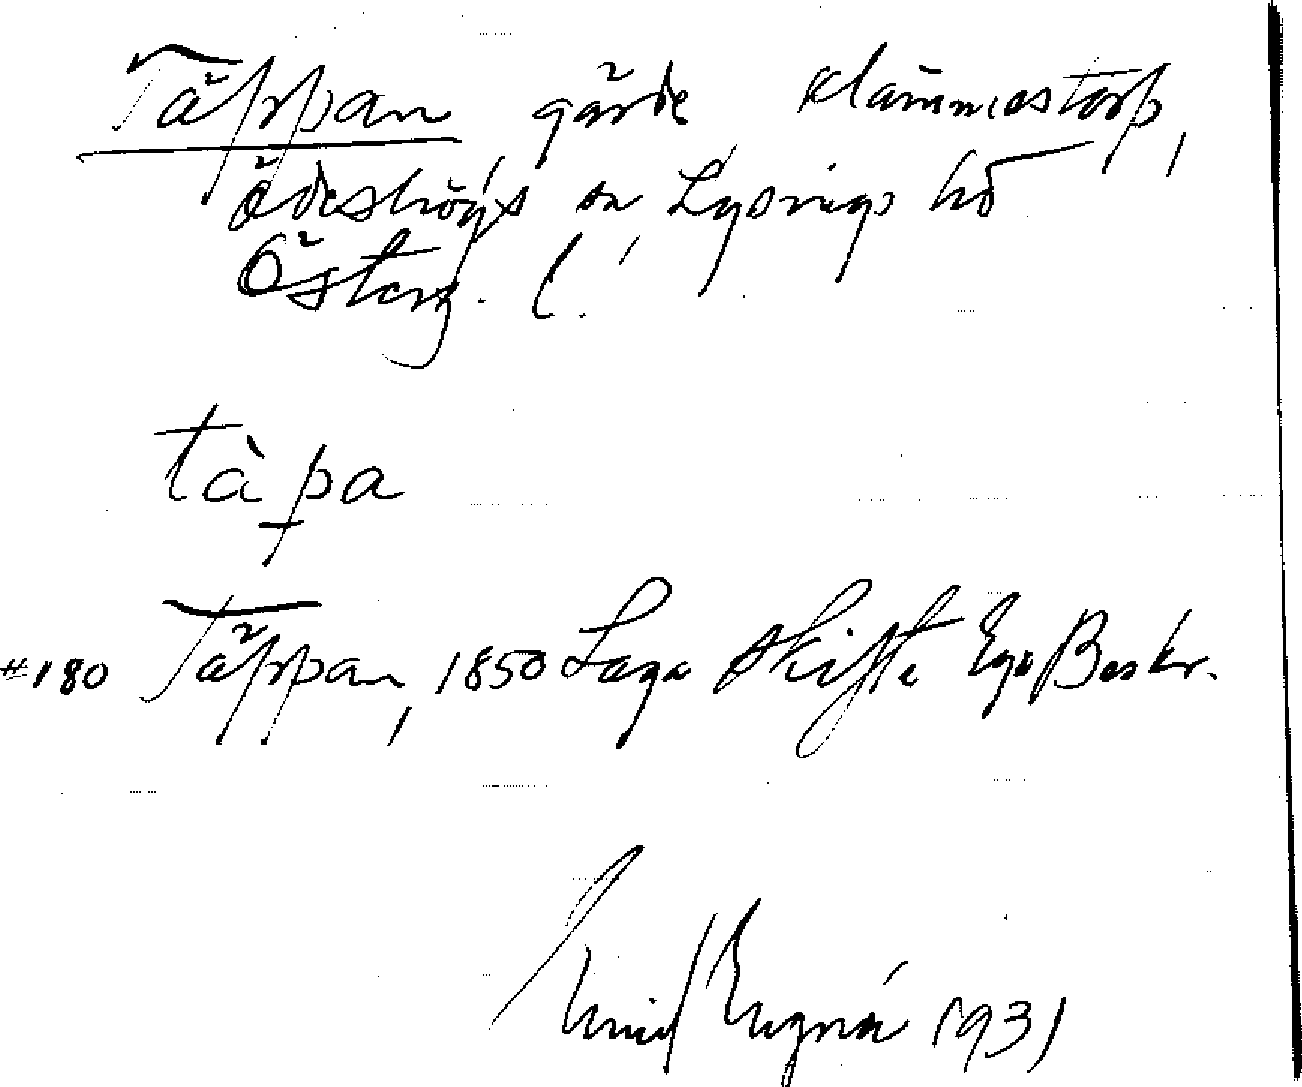 Täppan gärde Klämmestorp,
Ödeshögs sn Lysings hd
Österg. l.
tàpa
#180 Täppan, 1850 Laga Skifte Ego Beskr.
Emil 1931